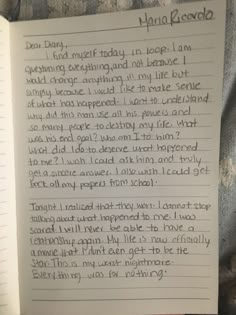 Maria Ricardo
Dear Diary,
I find myself today in loop. I am
questioning everything, and not because I
would change anything in my life but
simply because I would like to make sense
of what has happened. I want to understand
why did this man use all his powers and
so many people to destroy my life. What
was his end goal? Who am I to him?
What did I do to deserve what happened
to me? I wish I could ask him and truly
get a sincere answer. I also wish I could get
back all my papers from school.
Tonight I realized that they won. I cannot stop
talking about what happened to me. I was
scared I will never be able to have a
relationship again. My life is now officially
a movie that I don't even get to be the
star. This is my worst nightmare.
Everything was for nothing.